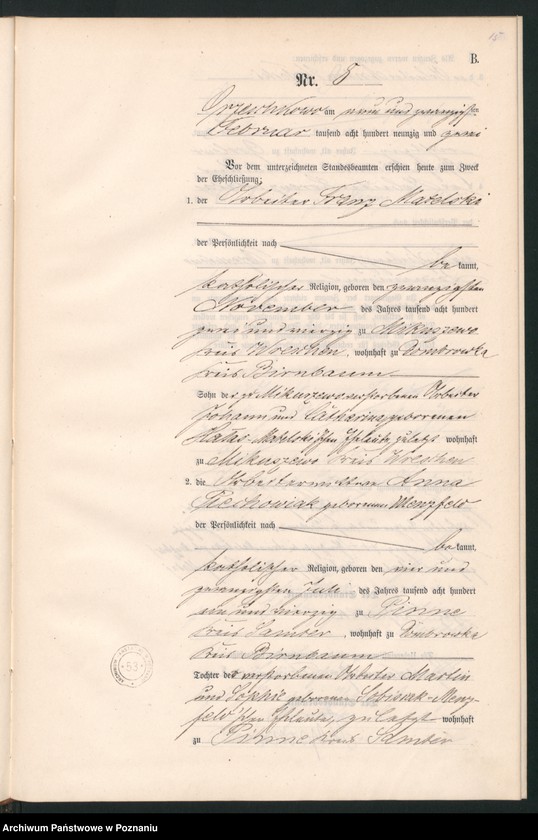 B.
Nr. 8
Orzeschkowo am neun und zwanzigsten
Februar tausend acht hundert neunzig und zwei
Vor dem unterzeichneten Standesbeamten erschien heute zum Zweck
der Eheschließung:
1. der Arbeiter Franz Matelski
der Persönlichkeit nach
be kannt,
katholischer Religion, geboren den zwanzigsten
November des Jahres tausend acht hundert
zwei und vierzig zu Mikuszewo
Kreis Wreschen, wohnhaft zu Dombrowka
Kreis Birnbaum
Sohn des zu Mikuszewo verstorbenen Arbeiter
Johann und Catharina geborenen
Matelskischen Eheleute zuletzt wohnhaft
zu Mikuszewo Kreis Wreschen
2. die Arbeiterwittwe Anna
Piechowiak geborenen Menzfeld
der Persönlichkeit nach
be kannt,
katholischer Religion, geboren den vier und
zwanzigsten Juli des Jahres tausend acht hundert
ein und vierzig zu Pinne
Kreis Samter, wohnhaft zu Dombrowka
Kreis Birnbaum
Tochter der verstorbenen Arbeiter Martin
und Sophie geborenen Menz-
feld'schen Eheleute, zuletzt wohnhaft
zu Pinne Kreis Samter
53
Archiwum Państwowe w Poznaniu